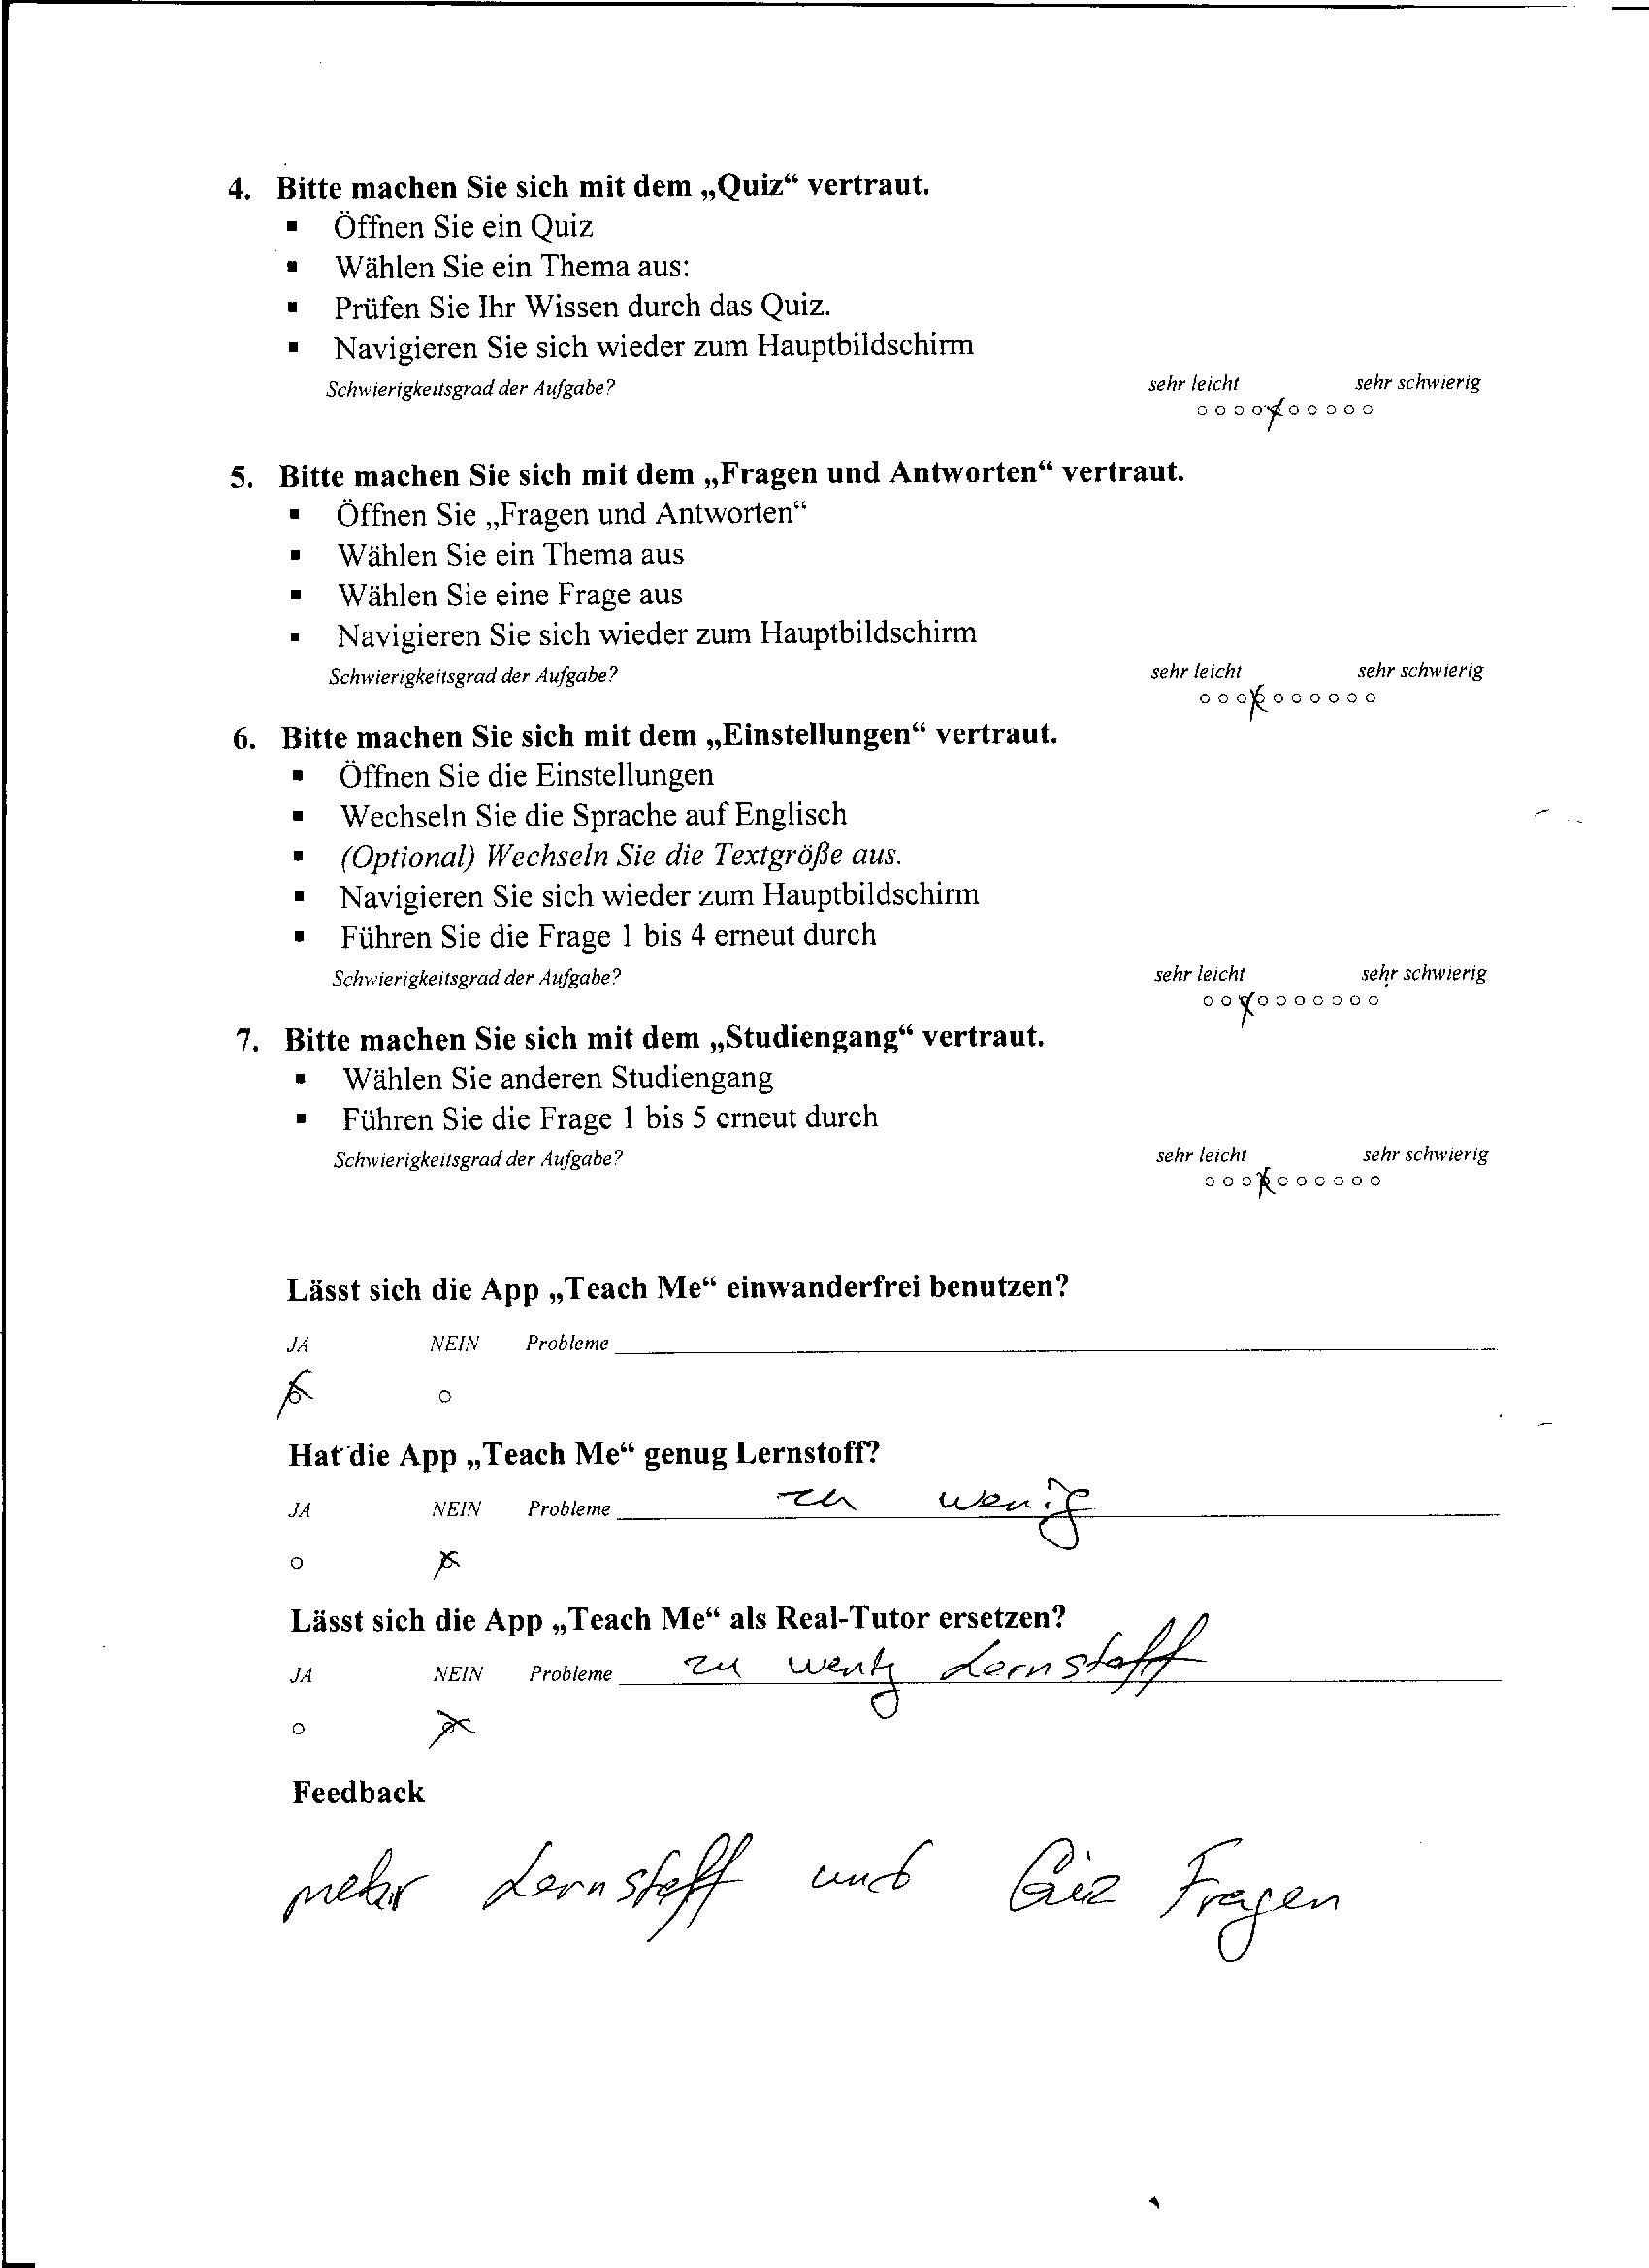 4. Bitte machen Sie sich mit dem „Quiz“ vertraut.
▪ Öffnen Sie ein Quiz
▪ Wählen Sie ein Thema aus:
▪ Prüfen Sie Ihr Wissen durch das Quiz.
▪ Navigieren Sie sich wieder zum Hauptbildschirm
Schwierigkeitsgrad der Aufgabe? sehr leicht sehr schwierig
5. Bitte machen Sie sich mit dem „Fragen und Antworten“ vertraut.
▪ Öffnen Sie „Fragen und Antworten“
▪ Wählen Sie ein Thema aus
▪ Wählen Sie eine Frage aus
▪ Navigieren Sie sich wieder zum Hauptbildschirm
Schwierigkeitsgrad der Aufgabe? sehr leicht sehr schwierig
6. Bitte machen Sie sich mit dem „Einstellungen“ vertraut.
▪ Öffnen Sie die Einstellungen
▪ Wechseln Sie die Sprache auf Englisch
▪ (Optional) Wechseln Sie die Textgröße aus.
▪ Navigieren Sie sich wieder zum Hauptbildschirm
▪ Führen Sie die Frage 1 bis 4 erneut durch
Schwierigkeitsgrad der Aufgabe? sehr leicht sehr schwierig
7. Bitte machen Sie sich mit dem „Studiengang“ vertraut.
▪ Wählen Sie anderen Studiengang
▪ Führen Sie die Frage 1 bis 5 erneut durch
Schwierigkeitsgrad der Aufgabe? sehr leicht sehr schwierig
Lässt sich die App „Teach Me“ einwanderfrei benutzen?
JA NEIN Probleme
Hat die App „Teach Me“ genug Lernstoff?
JA NEIN Probleme zu wenig
Lässt sich die App „Teach Me“ als Real-Tutor ersetzen?
JA NEIN Probleme zu wenig Lernstoff
Feedback
mehr Lernstoff und Quiz Fragen